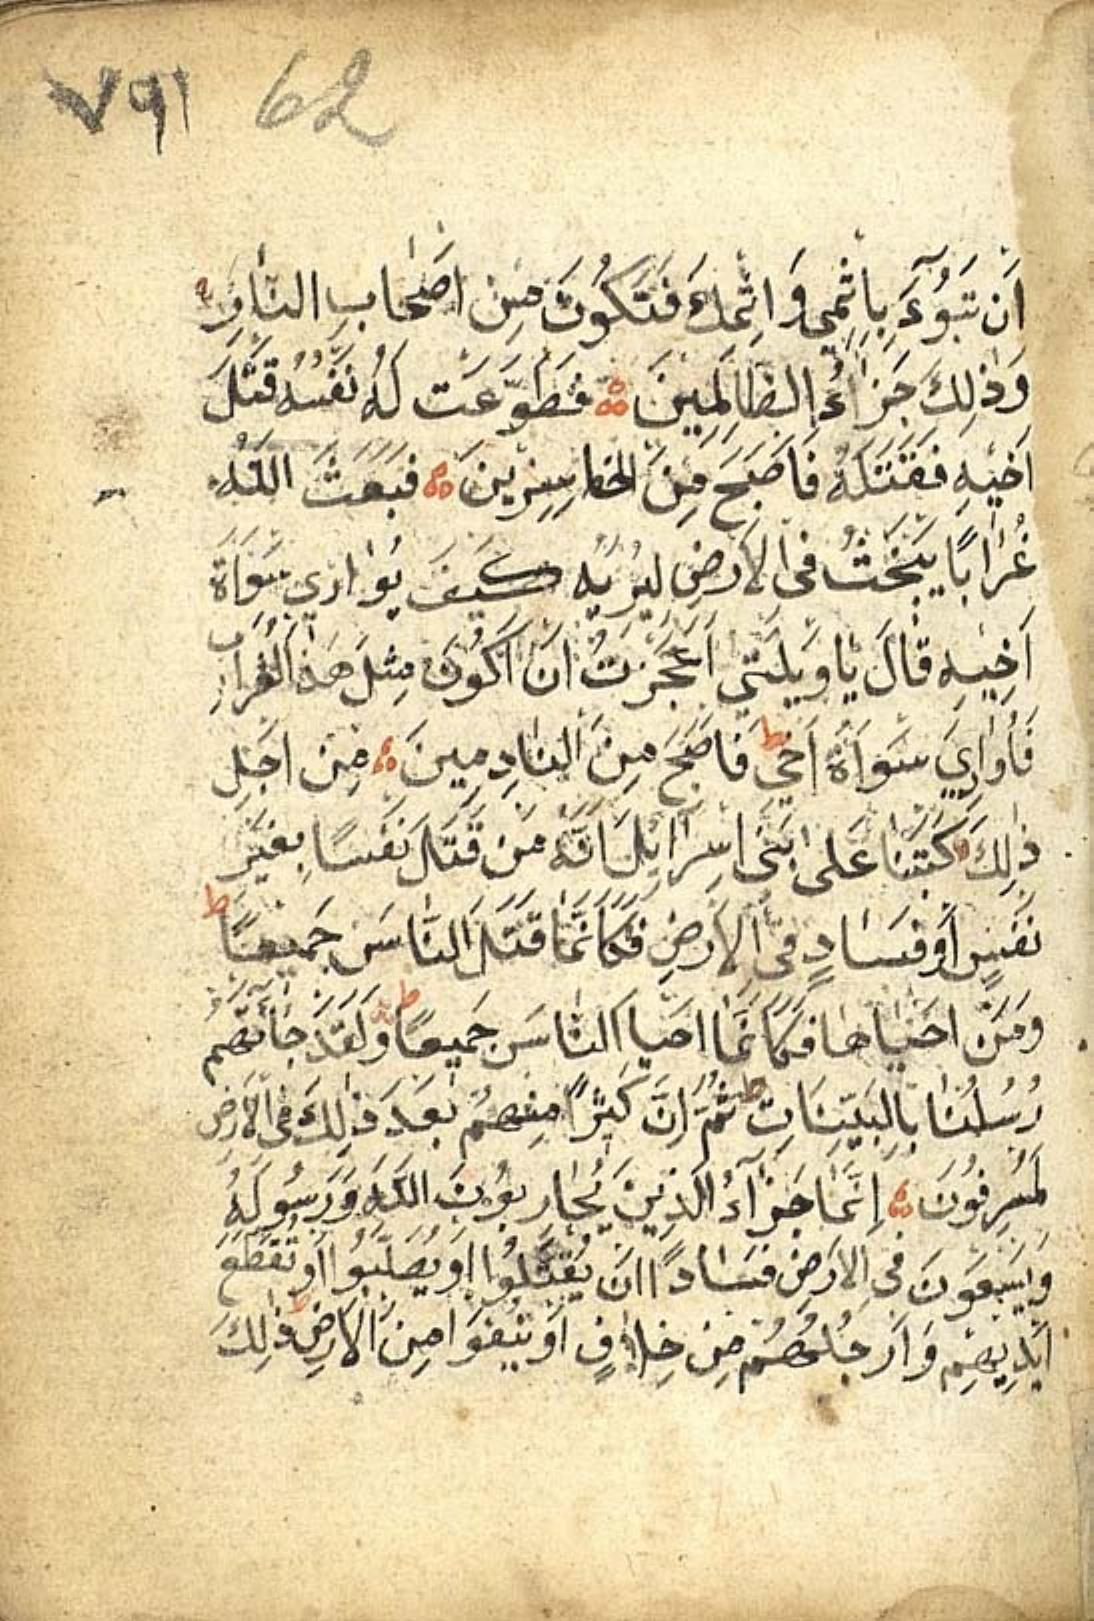 ٧٩١ 62
اَن تَبُوٓءَ بِاِثْمِي وَاِثْمِكَ فَتَكُونَ مِنْ اَصْحَابِ النَّارِ
وَذٰلِكَ جَزَاءُ الظَّالِمِينَ فَطَوَّعَت لَهُ نَفْسُهُ قَتْلَ
اَخِيهِ فَقَتَلَهُ فَاَصْبَحَ مِنَ الْخَاسِرِينَ فَبَعَثَ اللّٰهُ
غُرَابًا يَبْحَثُ فِي الْاَرْضِ لِيُرِيَهُ كَيْفَ يُوَارِي سَوْاَةَ
اَخِيهِ قَالَ يَا وَيْلَتٰي اَعَجَزْتُ اَنْ اَكُونَ مِثْلَ هٰذَا الْغُرَابِ
فَأُوَارِيَ سَوْاَةَ اَخِي ط فَاَصْبَحَ مِنَ النَّادِمِينَ مِنْ اَجْلِ
ذٰلِكَ كَتَبْنَا عَلٰى بَنِى اِسْرَايِلَ اَنَّهُ مَنْ قَتَلَ نَفْسًا بِغَيْرِ
نَفْسٍ اَوْ فَسَادٍ فِي الْاَرْضِ فَكَاَنَّمَا قَتَلَ النَّاسَ جَمِيعًا ط
وَمَنْ اَحْيَاهَا فَكَاَنَّمَا اَحْيَا النَّاسَ جَمِيعًا ط وَلَقَدْ جَآءَتْهُمْ
رُسُلُنَا بِالْبَيِّنَاتِ ط ثُمَّ اِنَّ كَثِيرًا مِنْهُمْ بَعْدَ ذٰلِكَ فِي الْاَرْضِ
لَمُسْرِفُونَ اِنَّمَا جَزَآءُ الَّذِينَ يُحَارِبُونَ اللّٰهَ وَرَسُولَهُ
وَيَسْعَوْنَ فِي الْاَرْضِ فَسَادًا اَنْ يُقَتَّلُوا اَوْ يُصَلَّبُوا اَوْ تُقَطَّعَ
اَيْدِيهِمْ وَاَرْجُلُهُمْ مِنْ خِلَافٍ اَوْ يُنْفَوْا مِنَ الْاَرْضِ ط ذٰلِكَ